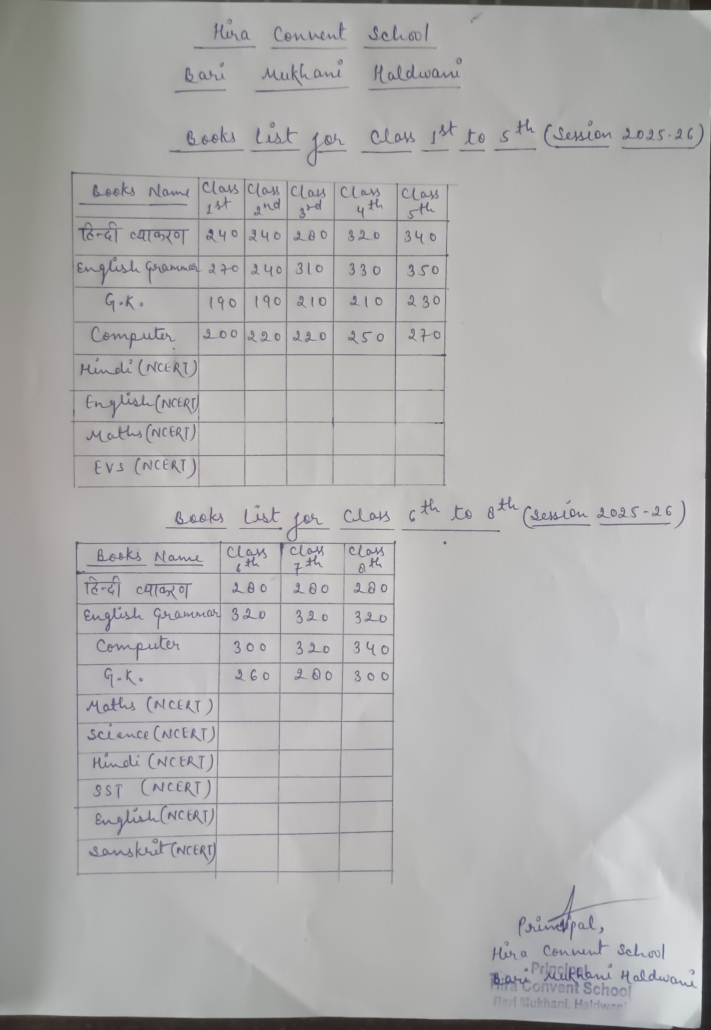 Hira Convent School
Bari Mukhani Haldwani
Books List for Class 1st to 5th (Session 2025-26)
Books Name Class 1st Class 2nd Class 3rd Class 4th Class 5th
हिन्दी व्याकरण 240 240 280 320 340
English Grammar 270 240 310 330 350
G.K. 190 190 210 210 230
Computer 200 220 220 250 270
Hindi (NCERT)
English (NCERT)
Maths (NCERT)
EVS (NCERT)
Books List for Class 6th to 8th (Session 2025-26)
Books Name Class 6th Class 7th Class 8th
हिन्दी व्याकरण 280 280 280
English Grammar 320 320 320
Computer 300 320 340
G.K. 260 280 300
Maths (NCERT)
Science (NCERT)
Hindi (NCERT)
SST (NCERT)
English (NCERT)
Sanskrit (NCERT)
Principal,
Hira Convent School
Bari Mukhani Haldwani
Principal
Hira Convent School
Bari Mukhani, Haldwani